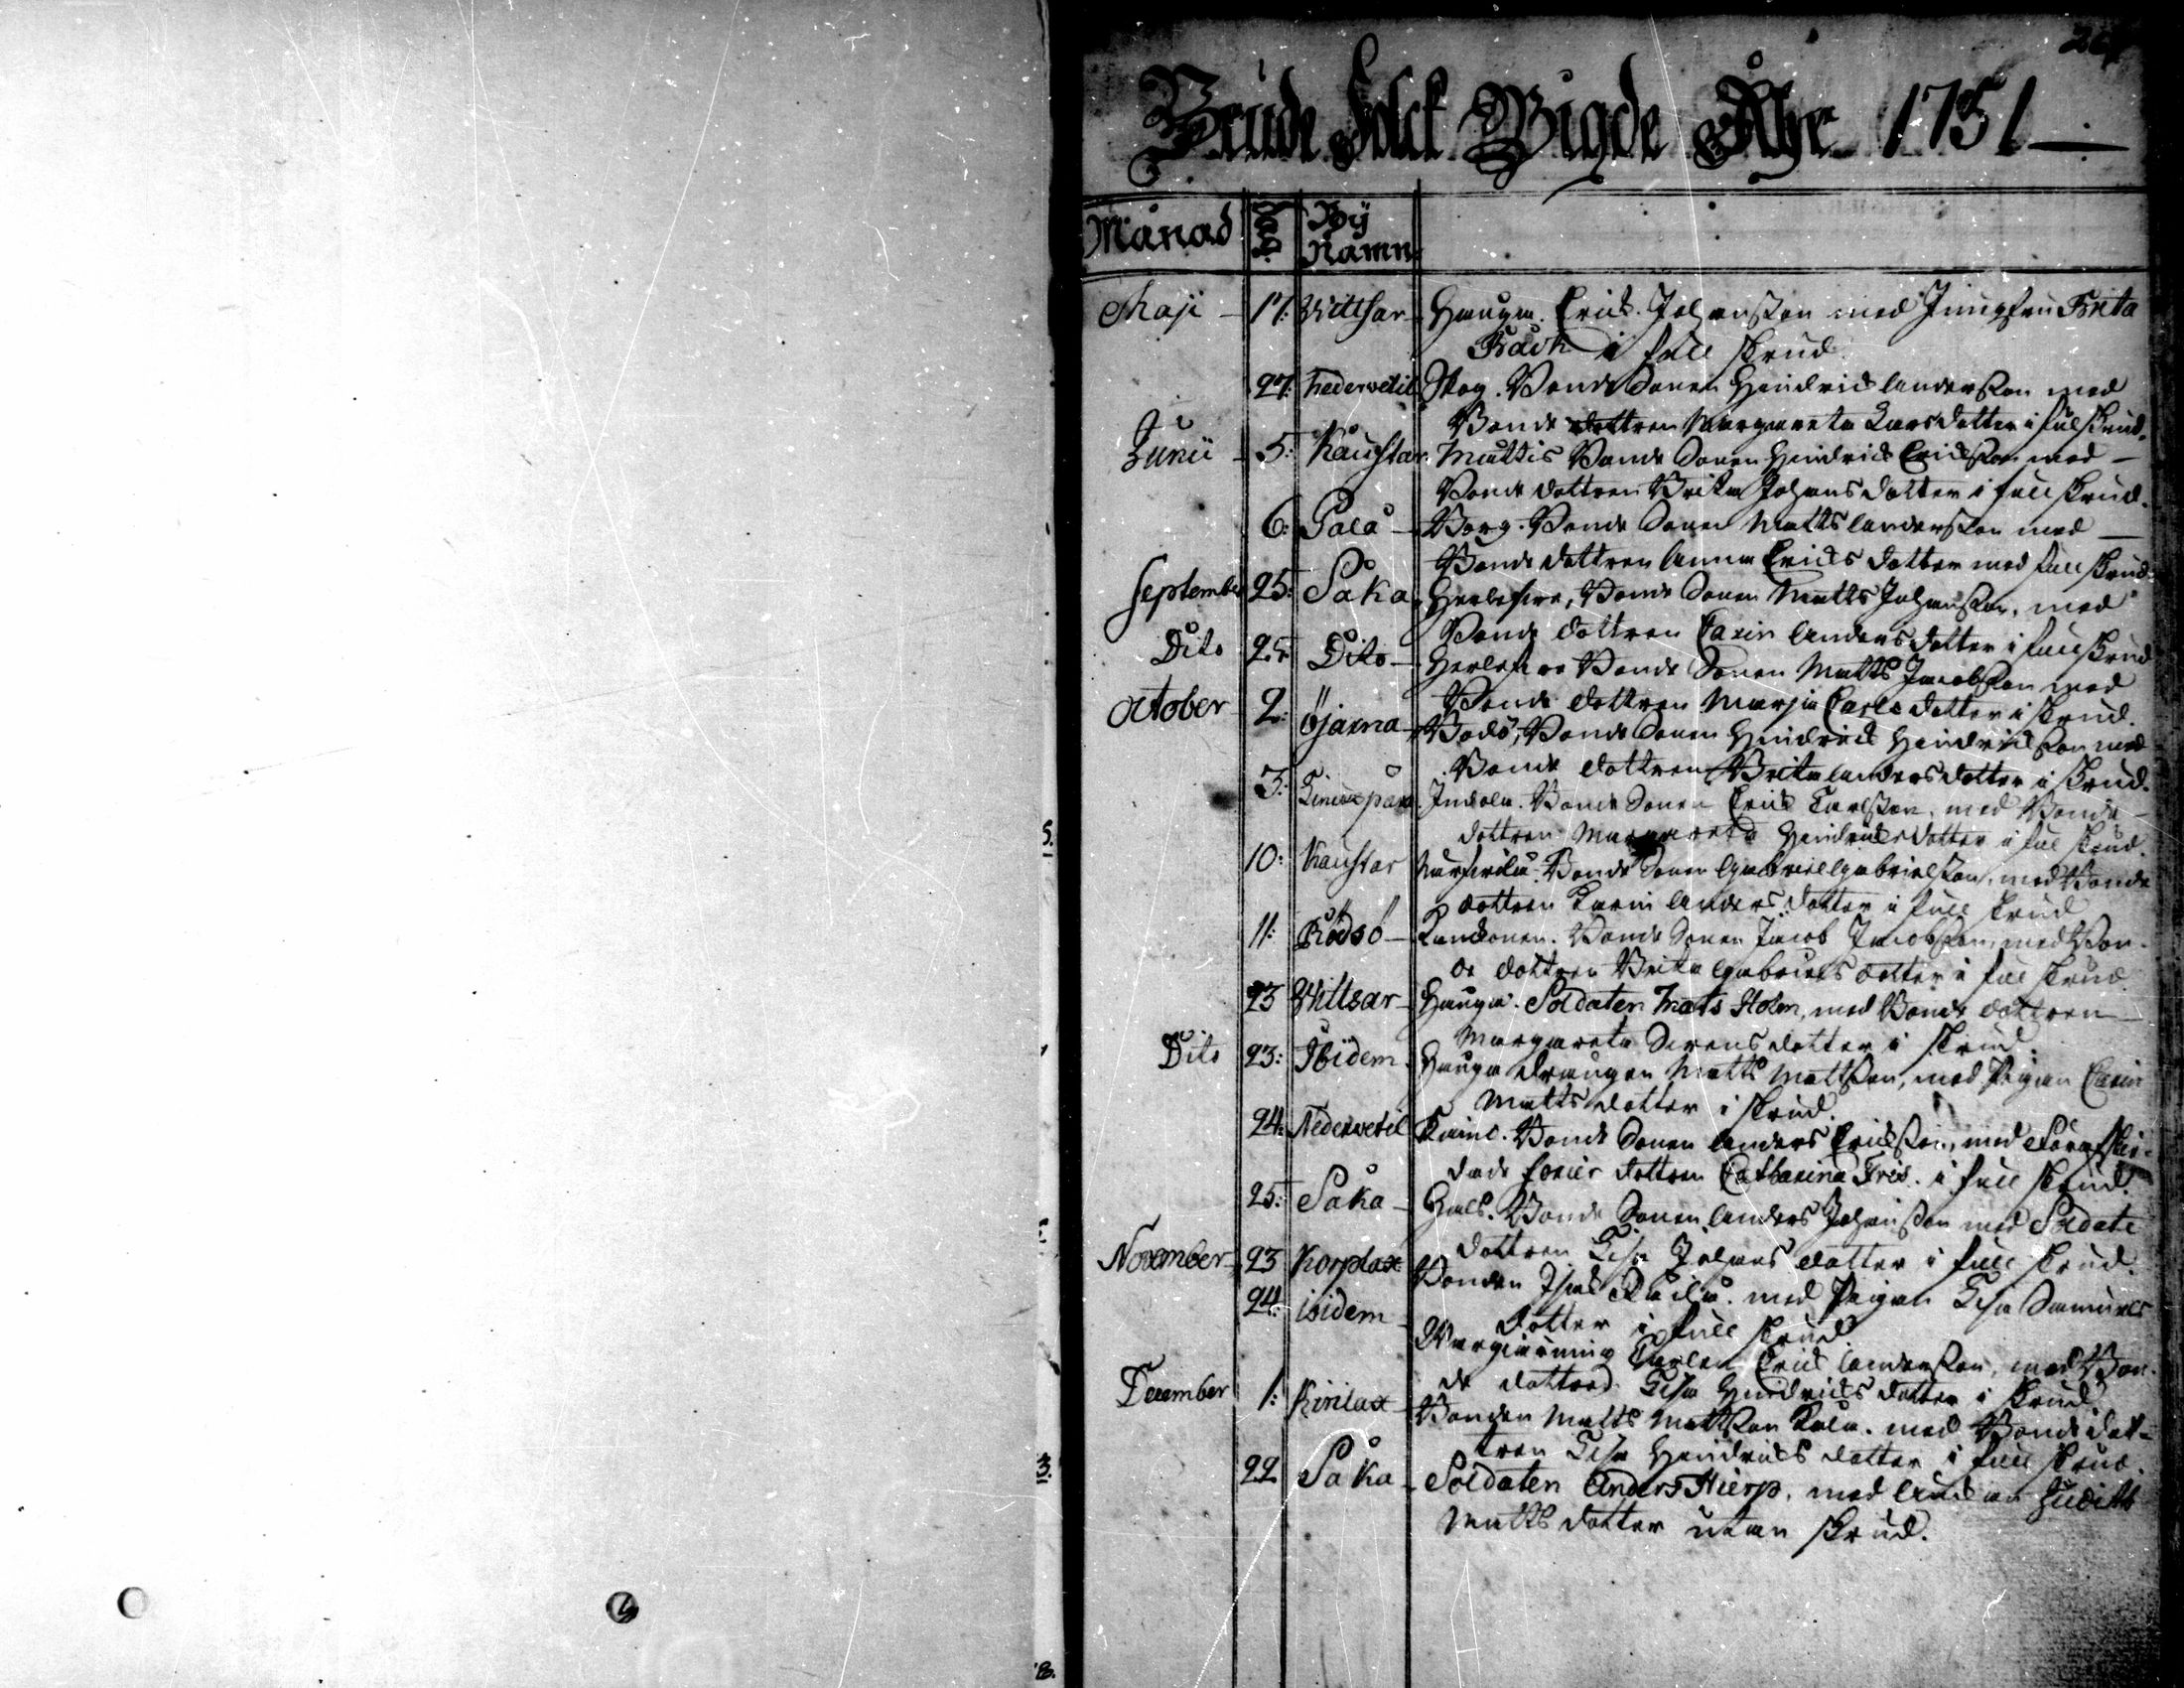 Brude Folck Wigde Åhr 1751
Månad Dag By Namn
Maji 17: Wittsar Hauga. Erick Johansson med Jungfru Brita
Back i full skrud
27: Nedervetil Skog. Bonde Sonen Hindrick Andersson med
Bonde dottren Margareta Larsdotter i full skrud.
Junii 5: Kaustar Mattis Bonde Sonen Hindrick Ericksson med
Bonde dottren Brita Johansdotter i full skrud.
6: Palå Borg. Bonde Sonen Matts Andersson med
Bonde dottren Anna Ericksdotter med full skrud.
September 25: Såka Herlefire, Bonde Sonen Matts Johansson, med
Bonde dottren Carin Andersdotter i full skrud
Dito 25 Dito Bonde Sonen Matts Jacobsson med
Bonde dottren Marja Carlsdotter i skrud.
October 2: Öjarna Bodö, Bonde Sonen Hindrick Hindricksson med
Bonde dottren Brita Andersdotter i skrud.
3: Indola. Bonde Sonen Erick Carlsson, med Bonde
dottren Margareta Hindricksdotter i full skrud.
10: Kaustar Bonde Sonen Gabriel Gabrielsson, med Bonde
dottren Karin Andersdotter i full skrud
11: Rödsö Bonde Sonen Jacob Jacobsson, med Bon-
de dottren Brita Gabrielsdotter i full skrud.
23 Wittsar Hauga. Soldaten Mats Holm, med Bonde dottren
Margareta Sirensdotter i skrud.
Dito 23: Ibidem. Hauga drängen Matts Mattsson, med Pigan Carin
Mattsdotter i skrud.
24: Nedervetil Bonde Sonen Anders Ericksson, med
dottren Catharina Fris. i full skrud.
25: Såka Hals. Bonde Sonen Anders Johansson med Soldate
dottren Lisa Johansdotter i full skrud.
November 23 Korplax Bonden Isack med Pigan Lisa Samuels
dotter i full skrud
24: ibidem Karlen Erick Andersson, med Bon-
de dottren Lisa Hindricksdotter i skrud
December 1: Kirilax Bonden Matts Mattsson Kala. med Bonde dot-
tren Lisa Hindricksdotter i full skrud.
22 Såka Soldaten Anders Hierp, med Judith
Mattsdotter utan skrud.